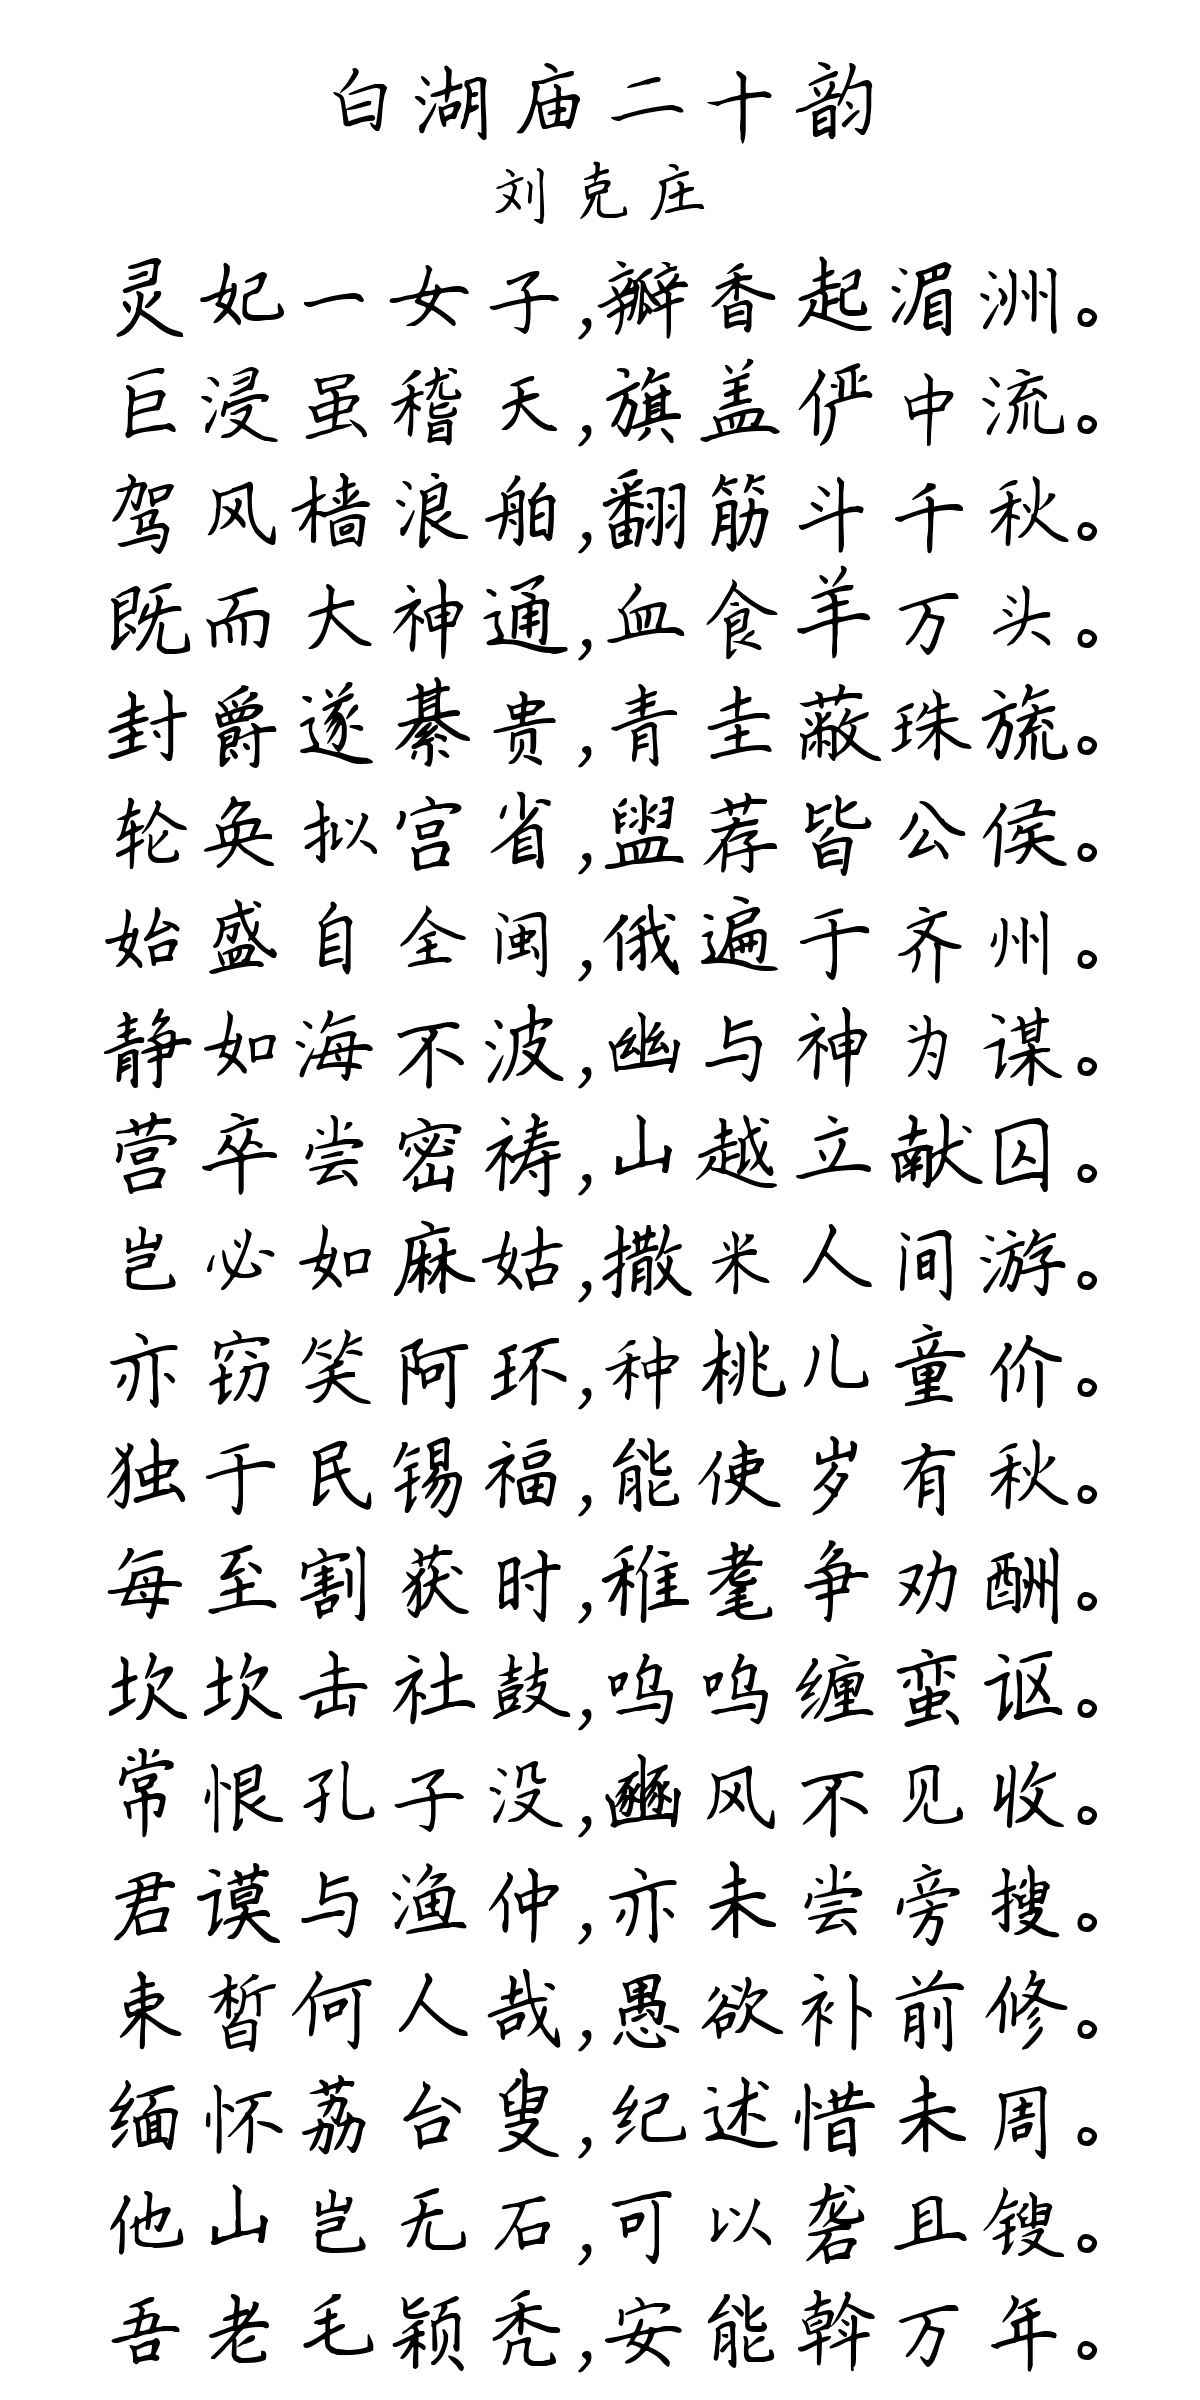 白湖庙二十韵
刘克庄
灵妃一女子,瓣香起湄洲。
巨浸虽稽天,旗盖俨中流。
驾风樯浪舶,翻筋斗千秋。
既而大神通,血食羊万头。
封爵遂綦贵,青圭蔽珠旒。
轮奂拟宫省,盥荐皆公侯。
始盛自全闽,俄遍于齐州。
静如海不波,幽与神为谋。
营卒尝密祷,山越立献囚。
岂必如麻姑,撒米人间游。
亦窃笑阿环,种桃儿童价。
独于民锡福,能使岁有秋。
每至割获时,稚耄争劝酬。
坎坎击社鼓,呜呜缠蛮讴。
常恨孔子没,豳风不见收。
君谟与渔仲,亦未尝旁搜。
束皙何人哉,愚欲补前修。
缅怀荔台叟,纪述惜未周。
他山岂无石,可以砻且锼。
吾老毛颖秃,安能斡万年。